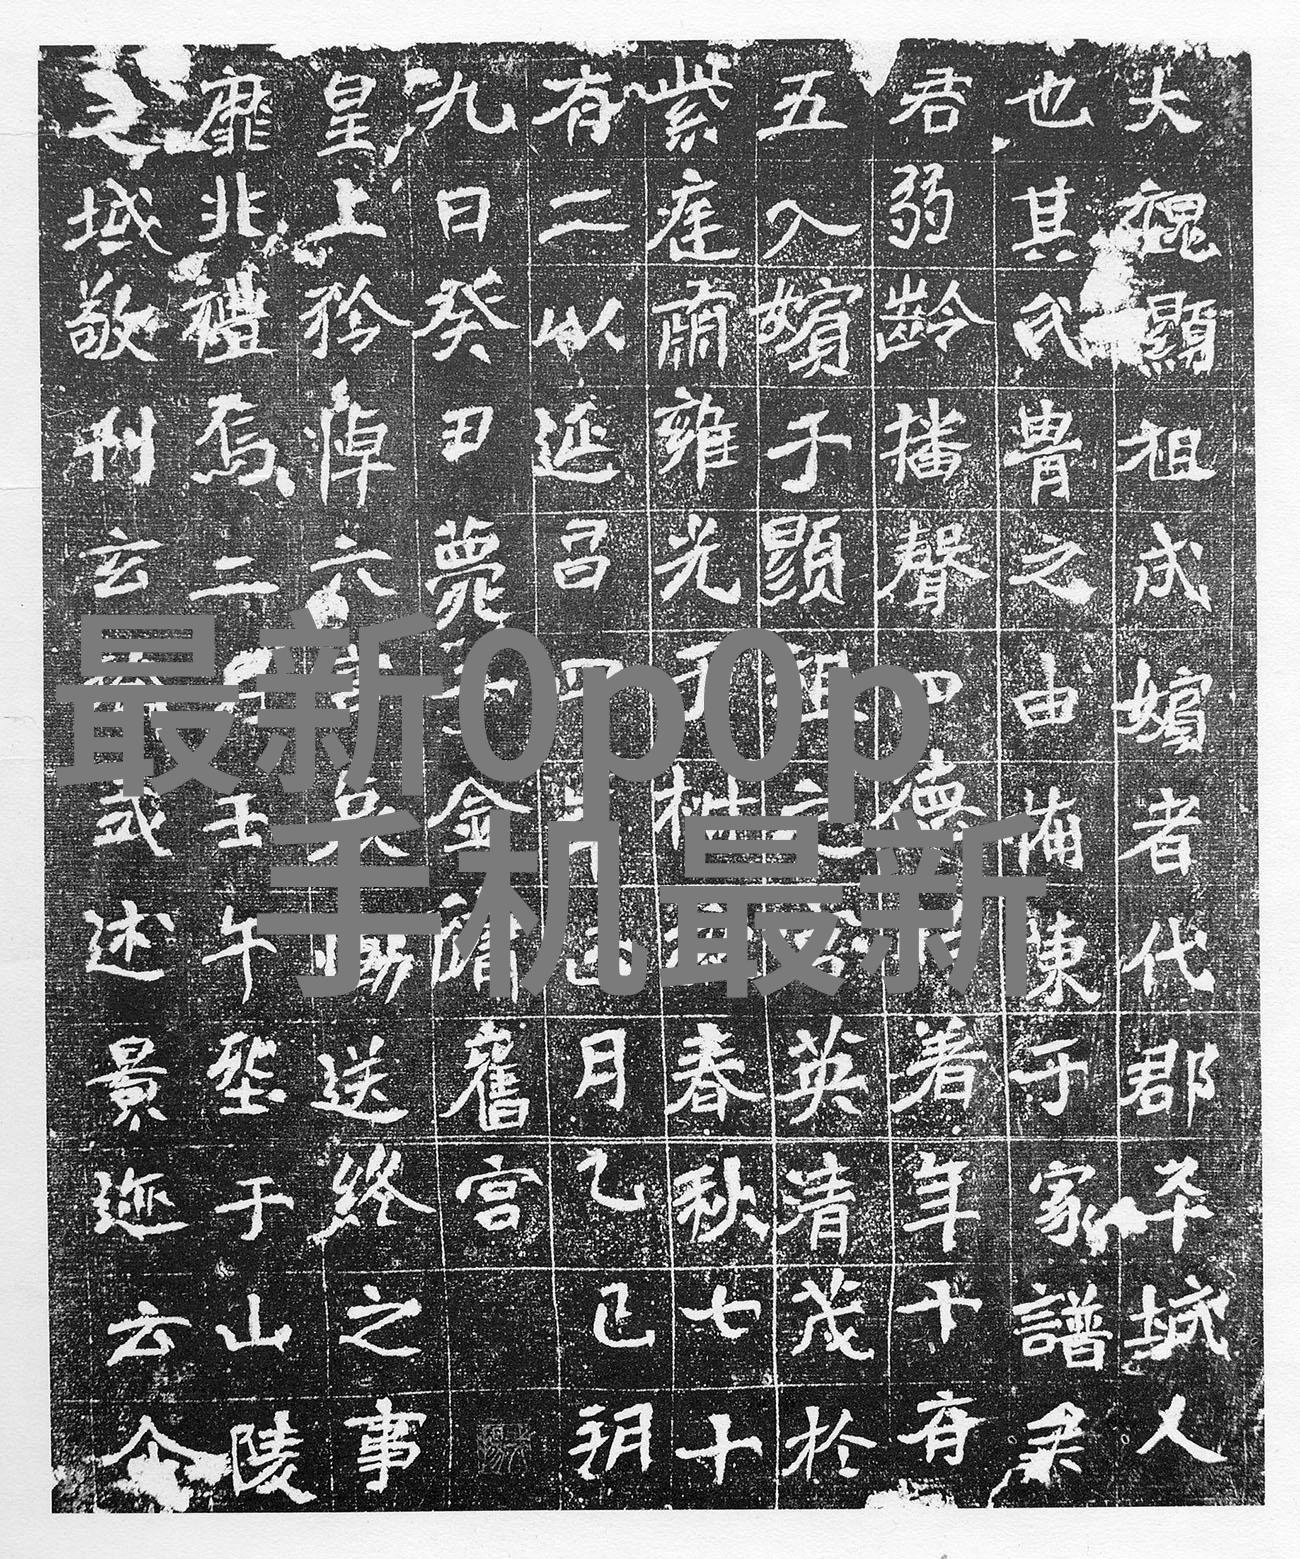 大魏顯祖成嬪者代郡平城人
也其氏胄之由備陳于家譜
君弱齡播聲四德著年十有
五入嬪于顯祖之英清茂於
紫庭肅雍光于椒春秋七十
有二以延昌四年正月乙巳朔
九日癸丑薨金墉舊宮
皇上矜悼六哀慟送終之事
靡非禮焉二壬午塟于山陵
之域敬刊玄式述景迹云
最新0p0p
手机最新